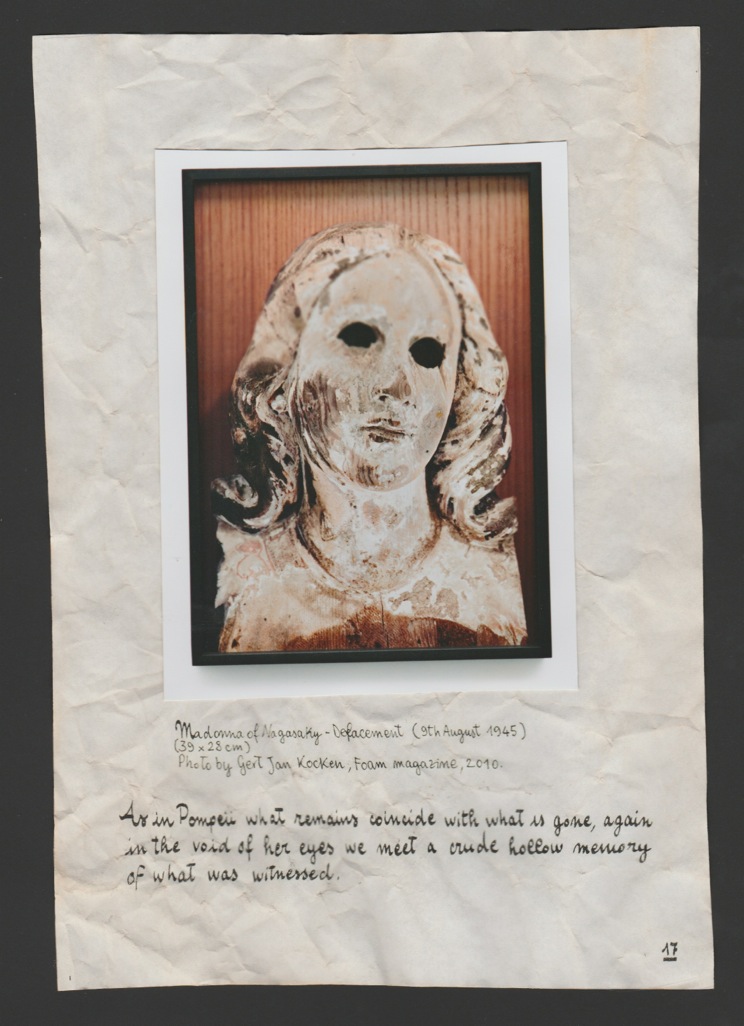 Madonna of Nagasaky - Defacement (9th August 1945)
(39 x 28 cm)
Photo by Gert Jan Kocken, Foam magazine, 2010.
As in Pompeii what remains coincide with what is gone, again
in the void of her eyes we meet a crude hollow memory
of what was witnessed.
17